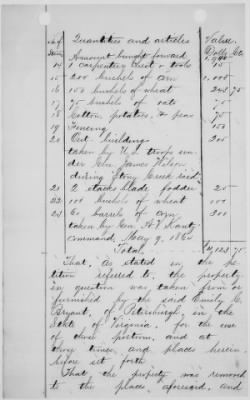 No. of Quantities and articles Value
Items Dolls. Cts.
Amount brought forward
14 1 carpenters chest & tools
15 200 bushels of corn 1,000
16 150 bushels of wheat 243 75
17 75 bushels of oats 75
18 Cotton, potatoes, & peas 150
19 Fencing
20 Out building 200
taken by U.S. troops un
der Gen. James Wilson
during Stony Creek raid
21 2 stacks blade fodder 25
22 100 bushels of wheat 100
23 60 barrels of corn 300
taken by Gen. A. V. Kautz
command, May 9, 1864
Total
That, as stated in the pe
tition referred to, the property
in question was taken from or
furnished by the said Emily C.
Bryant, of Petersburg, in the
State of Virginia, for the use
of their portion, and at
the times and places herein
before set forth.
That the property was removed
to the places aforesaid, and